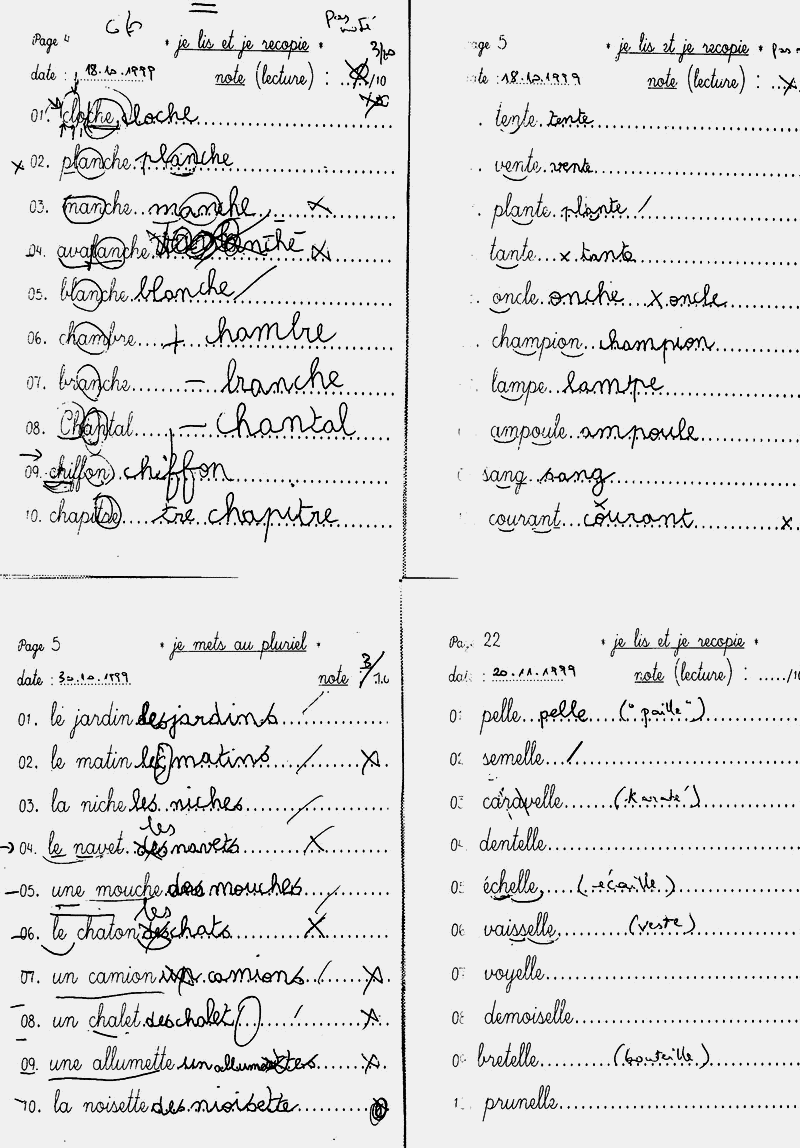 Page 4 * je lis et je recopie * pas noté
3/20
date : 18.10.1999 note (lecture) : ..../10
01. cloche cloche
x 02. planche planche
03. manche manche x
04. avalanche x
05. blanche blanche /
06. chambre + chambre
07. branche – branche
08. Chantal – chantal
→ 09. chiffon chiffon
10. chapitre tre chapitre
age 5 * je lis et je recopie * pas
ate : 18.10.1999 note (lecture) : ...
. tente tente
. vente vente
. plante plante /
. tante x tante
. oncle onche x oncle
. champion champion
. lampe lampe
. ampoule ampoule
sang sang
courant courant x
Page 5 * je mets au pluriel *
date : 30.10.1999 note 3/10
01. le jardin des jardins /
02. le matin les matins / x
03. la niche les niches /
les
→ 04. le navet des navets x
– 05. une mouche des mouches /
les
– 06. le chaton des chats x
07. un camion camions / x
08. un chalet des chalet / x
09. une allumette un x
10. la noisette des nioisette
Pa. 22 * je lis et je recopie *
dat : 20.11.1999 note (lecture) : ...../10
0 pelle pelle ("paille")
02 semelle /
03 caravelle (karaté)
04 dentelle
05 échelle (écaille)
06 vaisselle (veste)
07 voyelle
08 demoiselle
09 bretelle (bouteille)
1 prunelle